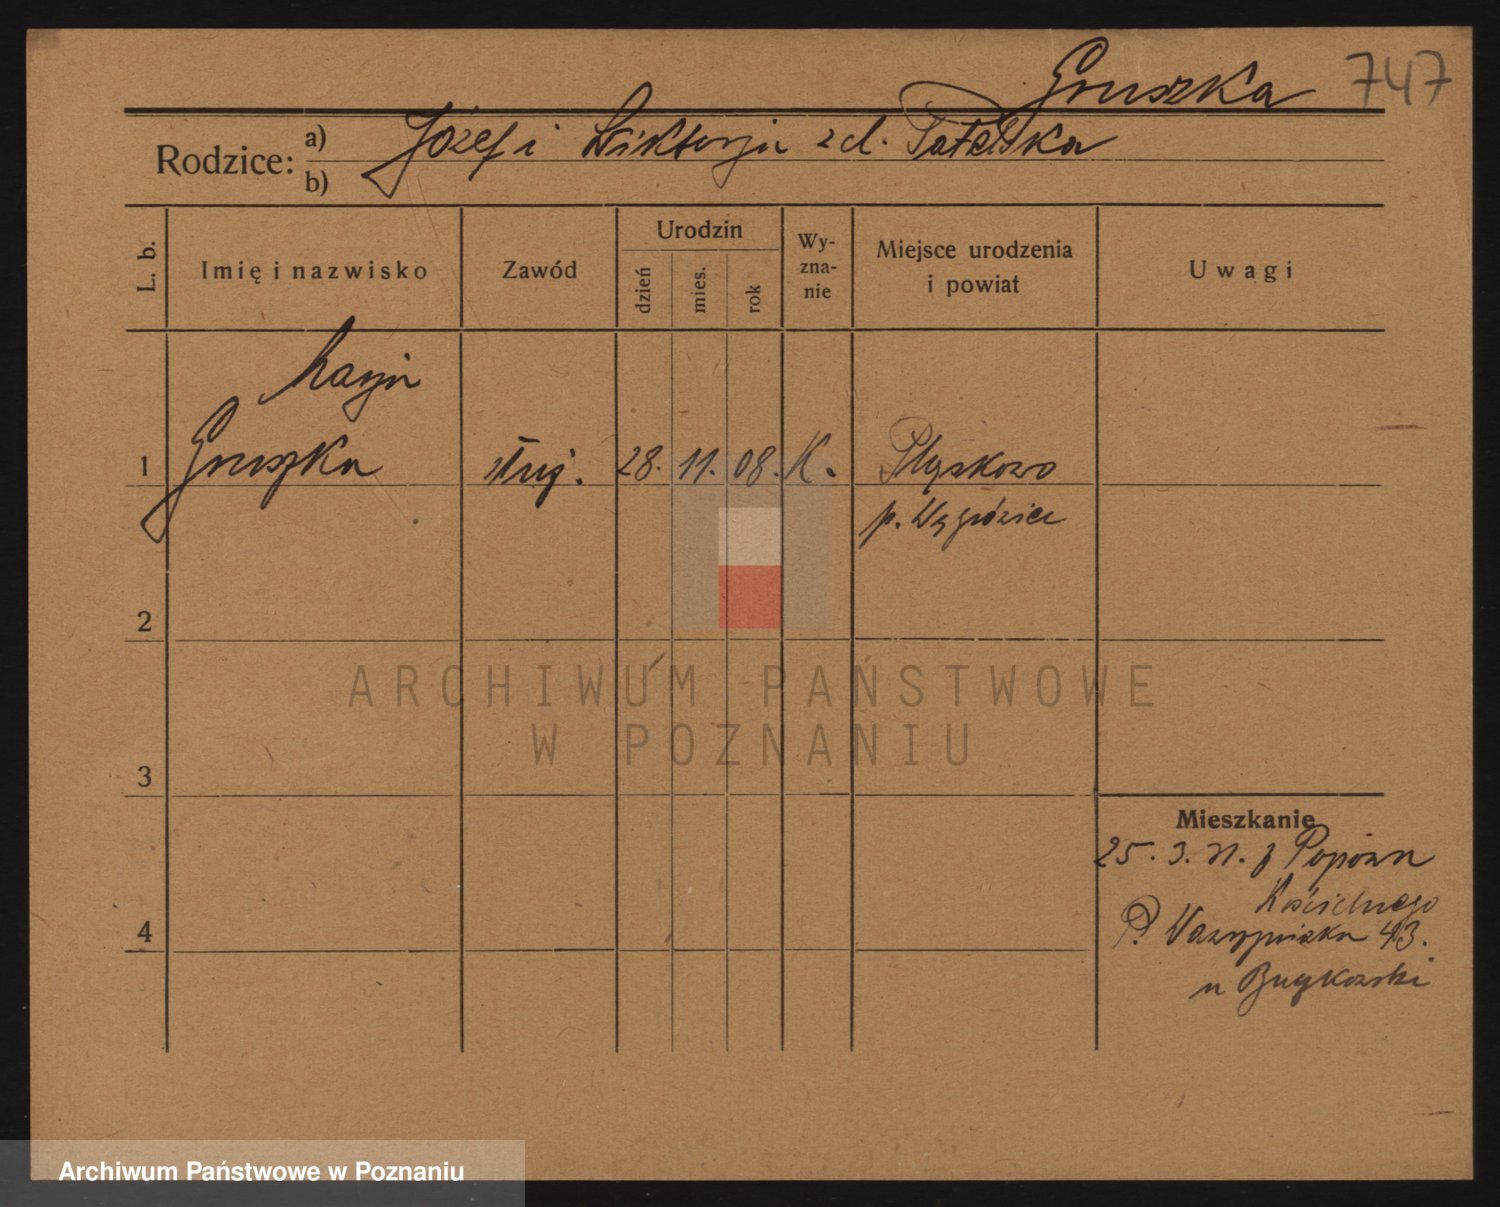 Gruszka 747
Rodzice: a) Józef i Wiktorja z d. Patelska
b)
L. b.
Imię i nazwisko
Zawód
Urodzin
dzień
mies.
rok
Wy-
zna-
nie
Miejsce urodzenia
i powiat
Uwagi
Marja
1 Gruszka służ. 28. 11. 08. K.
p. Wągrówiec
2
ARCHIWUM PAŃSTWOWE
W POZNANIU
3
Mieszkanie
25. 3. 31. z
Kościelnego
4
43.
u
Archiwum Państwowe w Poznaniu